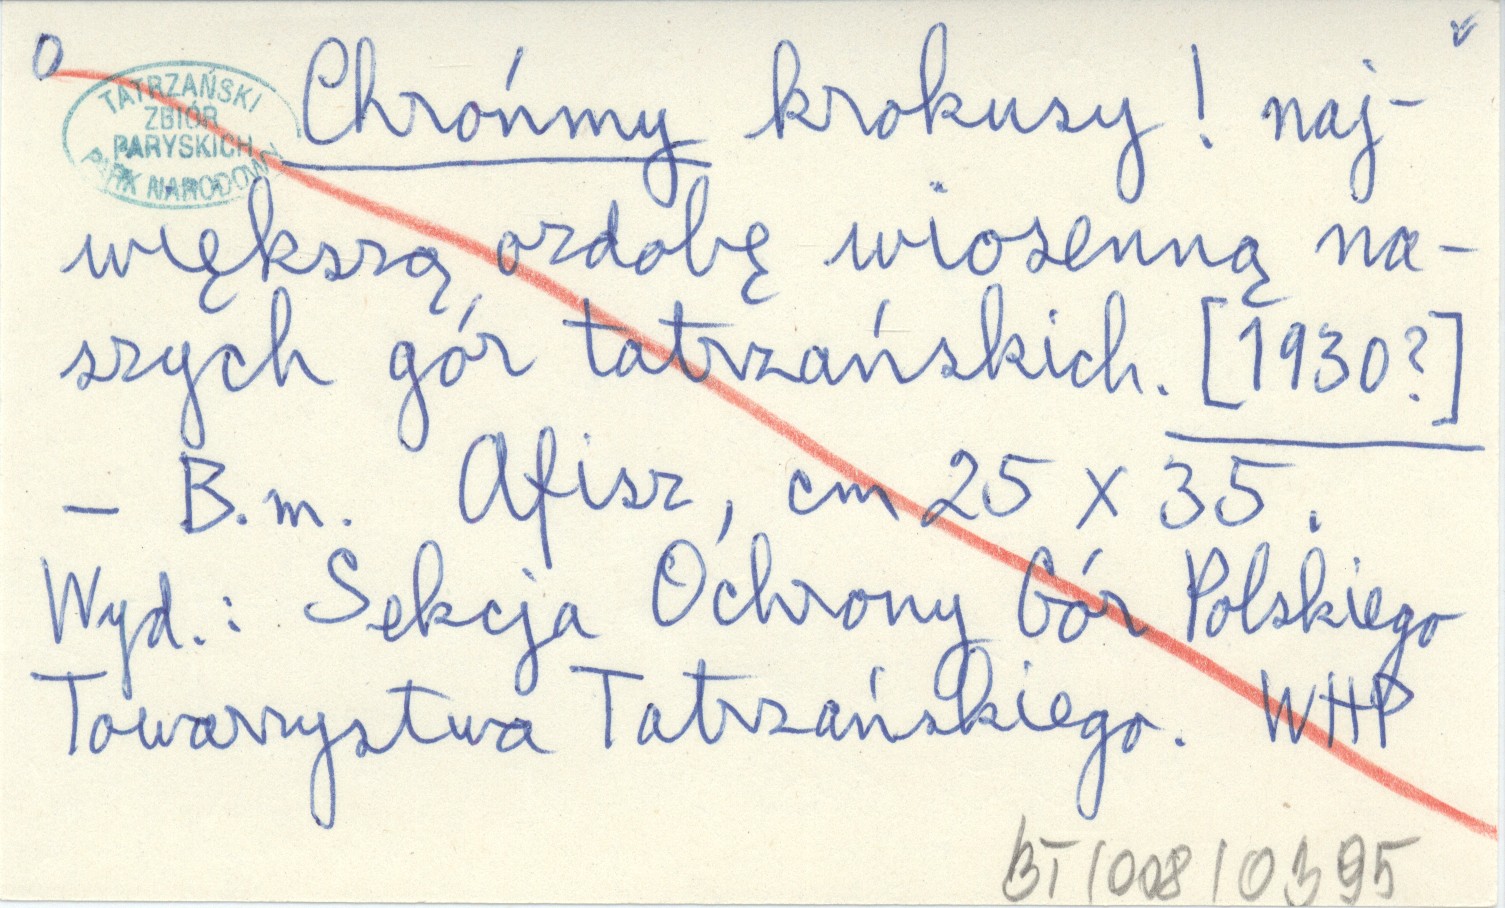 O
TATRZAŃSKI
ZBIÓR
PARYSKICH
PARK NARODOWY
Chrońmy krokusy! naj-
większą ozdobę wiosenną na-
szych gór tatrzańskich. [1930?]
– B.m. Afisz, cm 25 x 35.
Wyd.: Sekcja Ochrony Gór Polskiego
Towarzystwa Tatrzańskiego. WHP
BT/008/0395